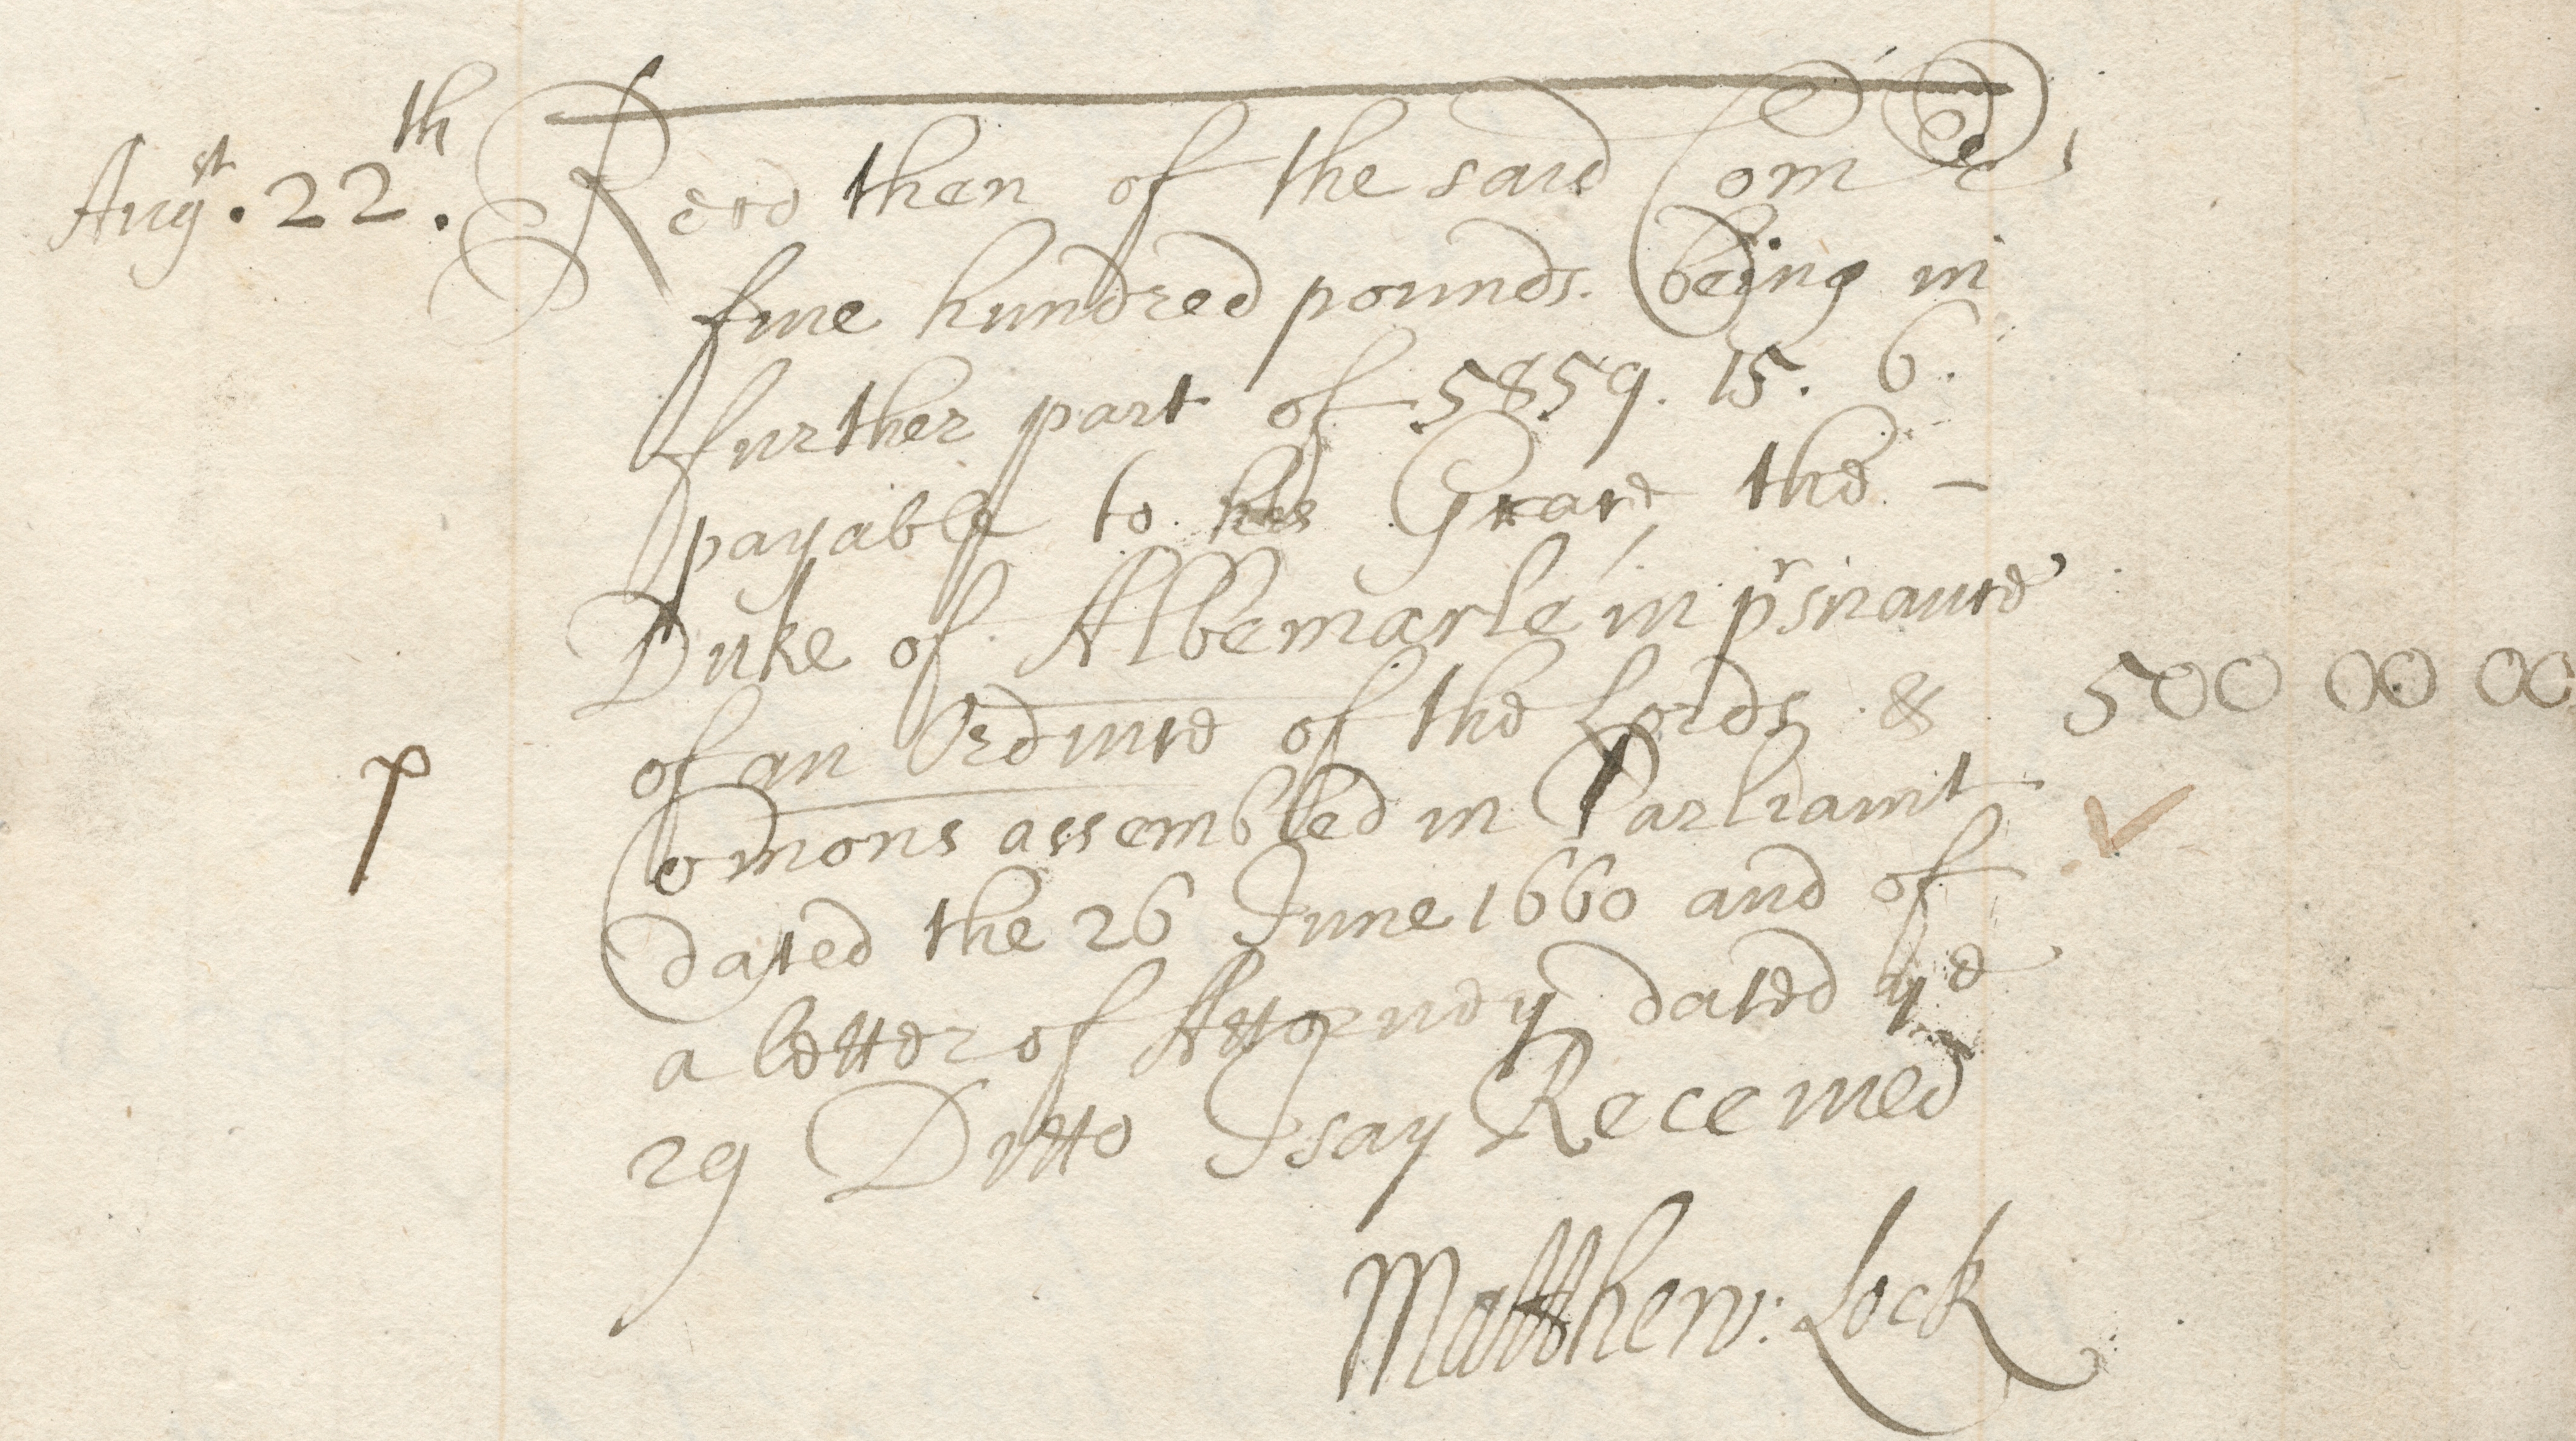 Augst. 22th. Recd then of the said Comrs
fiue hundred pounds. being in
further part of 5859. 15. 6.
payable to his Grace, the -
Duke of Albemarle, in prsnance
of an Ordince of the Lords & 500 00 00
Comons assembled in Parliamt
p
dated the 26 June 1660 and of
a letter of Attorney dated ye
29 Ditto I say Receiued
Matthew: Lock